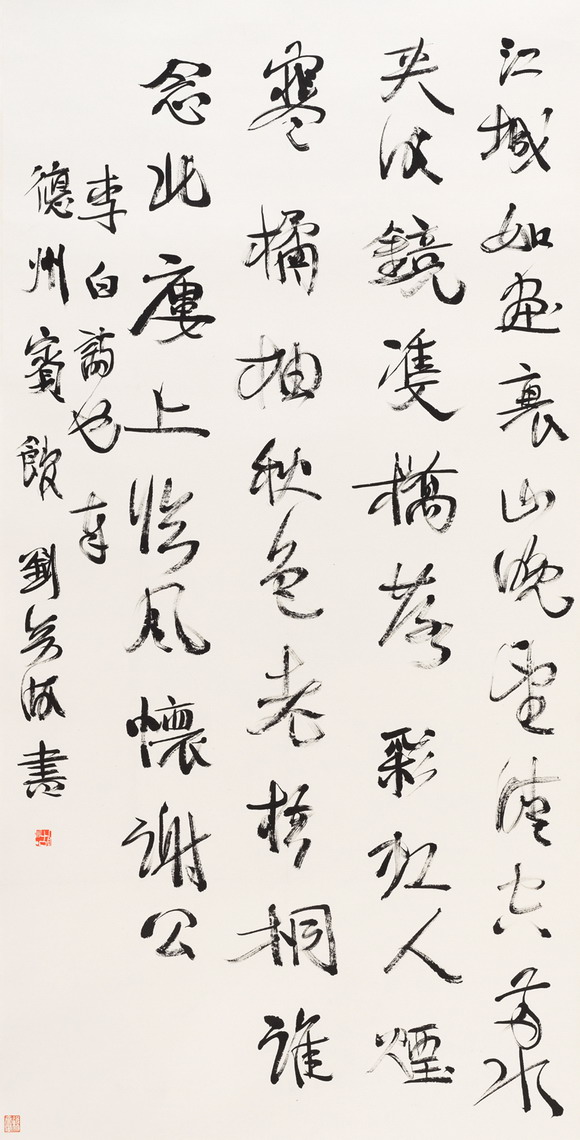 江城如畫裏山晚望空兩水
夾明鏡雙橋落彩虹人煙
寒橘柚秋色老梧桐誰
念北廔上臨風懷謝公
李白詩也
德州賓館劉書